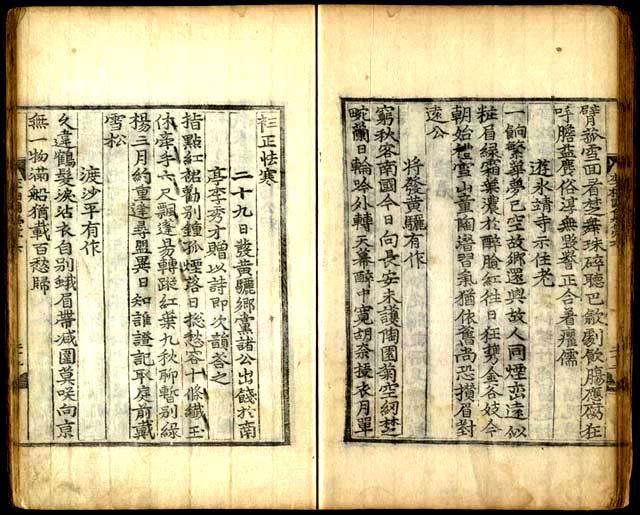 臂菰雪面看棼舞珠碎聽巴歈劇飮腸應腐狂
呼膽益麤俗淳無毀譽正合著癯儒
遊永靖寺示住老
一餉繁華夢已空故鄕還與故人同煙巒遠似
粧眉綠霜葉濃於醉臉紅往日狂携金谷妓今
朝始禮雪山童陶潜習氣猶依舊尚恐攢眉對
遠公
將發黃驪有作
窮秋客南國今日向長安未護陶園菊空紉楚
畹蘭日輪吟外轉天幕醉中寬胡奈授衣月單
衫正怯寒
二十九日發黃驪鄕黨諸公出餞於南
亭李秀才贈以詩即次韻答之
指點紅裙勸別鍾孤煙落日捴愁容十條纖玉
休牽手六尺飄蓬易轉蹤紅葉九秋聊暫別綠
楊三月約重逢尋盟異日知誰證記取庭前戴
雪松
渡沙平有作
久違鶴髮淚沾衣自別蛾眉帶減圍莫咲向京
無一物滿船猶載百愁歸